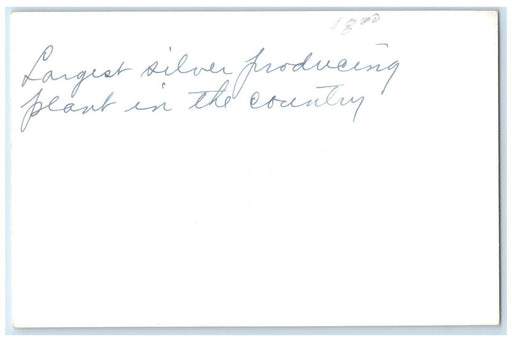 18.00
Largest silver producing
plant in the country